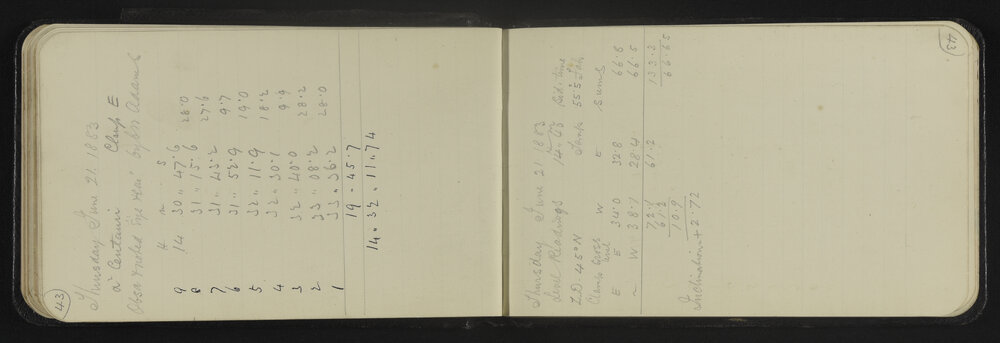 43
Thursday June 21. 1883
α² Centauri Clamp E
Obsr & noted by Mr C.W. Adams
h m s
9 14 30 " 47.6 28.0
8 31 " 15.6 27.6
7 31 " 43.2 9.7
6 31 " 52.9 19.0
5 32 " 11.9 18.2
4 32 " 30.1 9.9
3 32 " 40.0 28.2
2 33 " 08.2 28.0
1 33 " 36.2
19 - 45.7
14 . 32 " 11.74
43
Thursday June 21 1883
Level Readings
Z.D 45° N
Clamp Cross End W E Sums
E E 34.0 32.8 66.8
" W 38.1 28.4 66.5
72.1 61.2 133.2
61.2 66.65
10.9
Inclination + 2.72